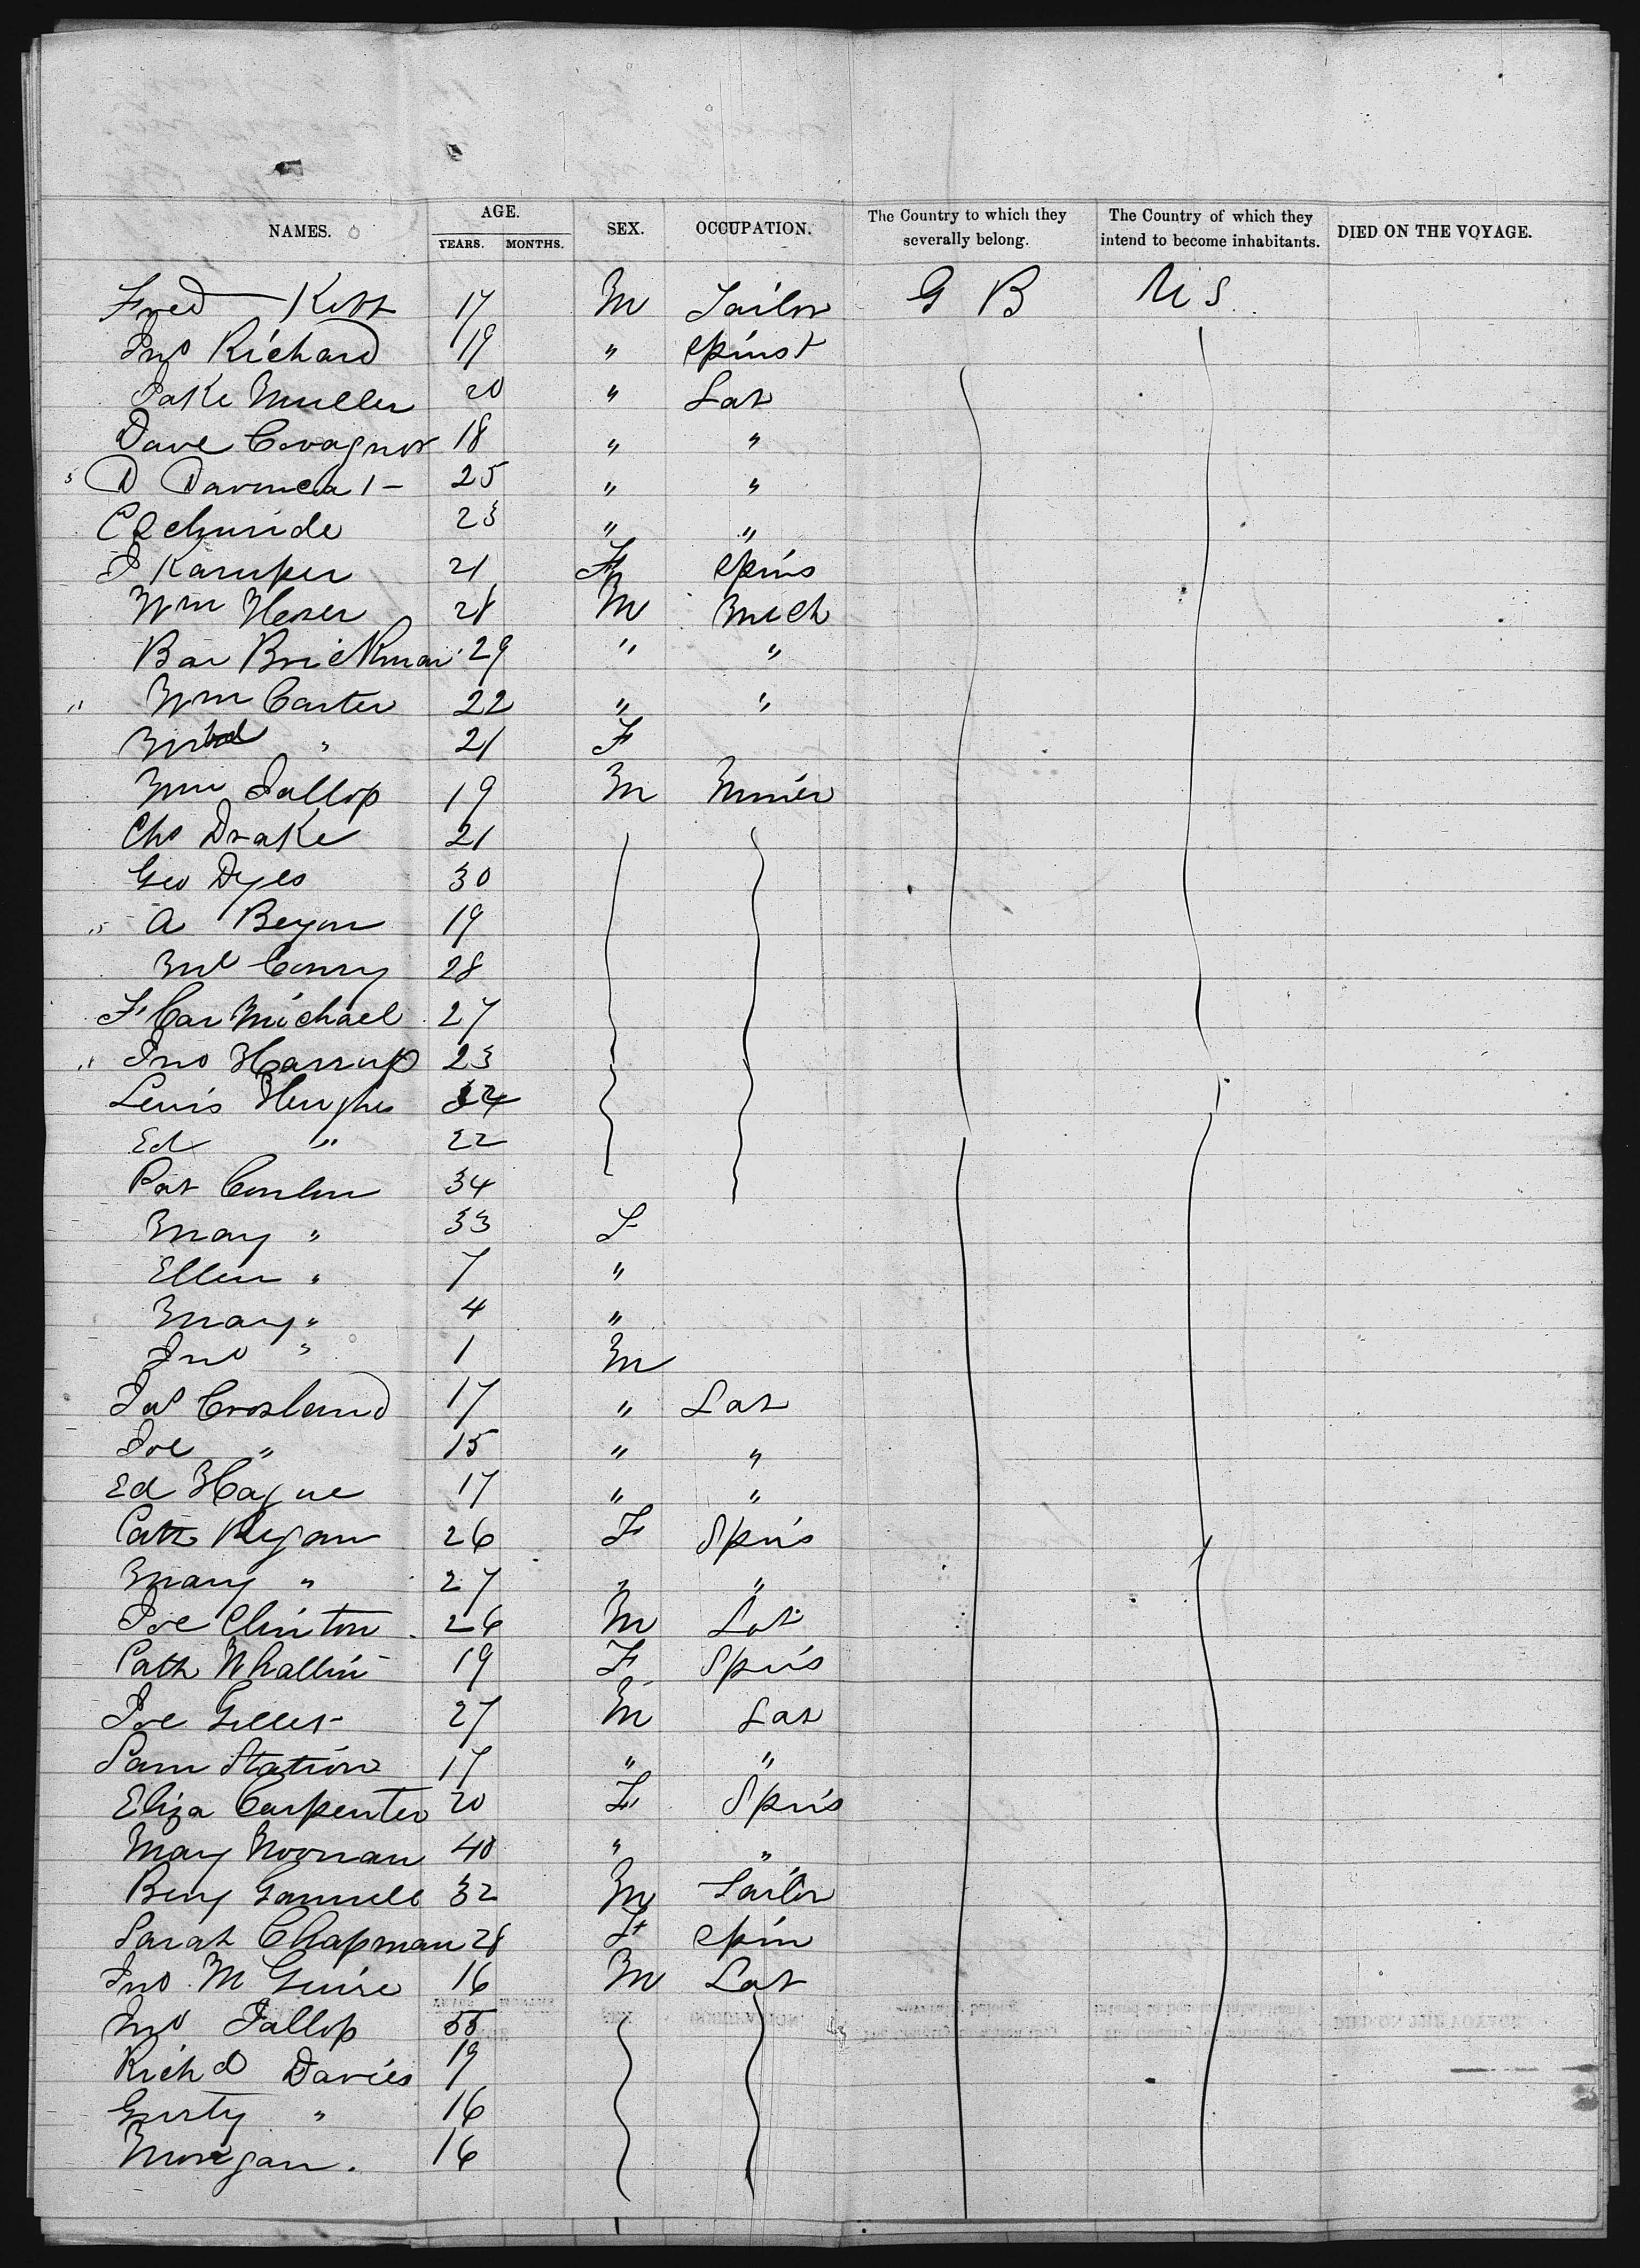 NAMES. AGE. SEX. OCCUPATION. The Country to which they severally belong. The Country of which they intend to become inhabitants. DIED ON THE VOYAGE.
YEARS. MONTHS.
Fred Kett 17 M Tailor G B U S
Jno Richard 19 " Spinst
Jake Muller 20 " Lab
Dave 18 " "
D 25 " "
23 " "
J Kamper 21 F Spins
Wm Heser 28 M Mech
Bar Brickman 29 " "
Wm Carter 22 " "
" 21 F
Wm Jallop 19 M Miner
Chs Drake 21
Geo Dyes 30
A Beyon 19
28
F CarMichael 27
Jno Harrup 23
Lewis Hughes 24
Ed " 22
Pat Conlon 34
Mary " 33 F
Ellen " 7 "
Mary " 4 "
Jno " 1 M
Jas Crosland 17 " Lab
Joe " 15 " "
Ed Hague 17 " "
Cath Regan 26 F Spins
Mary " 27 " "
Joe Clinton 26 M Lab
Cath Whallin 19 F Spins
Joe Gillet 27 M Lab
Sam Station 17 " "
Eliza Carpenter 20 F Spins
Mary Noonan 40 " "
Benj Gammell 32 M Tailor
Sarah Chapman 28 F Spin
Jno McGuire 16 M Lab
Jno Jallop 55
Richd Davies 19
Gusty " 16
Morgan. 16